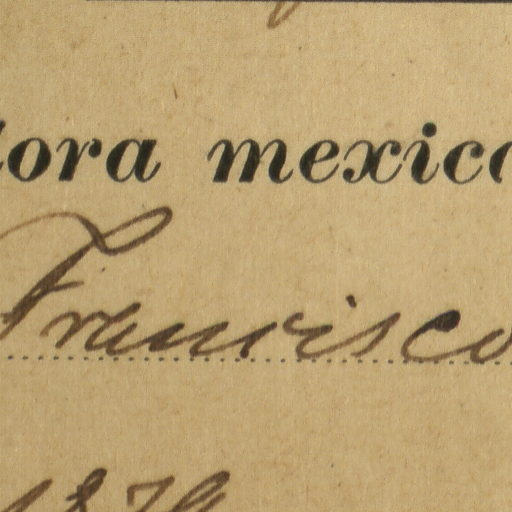 lora mexica
Francisco
1879